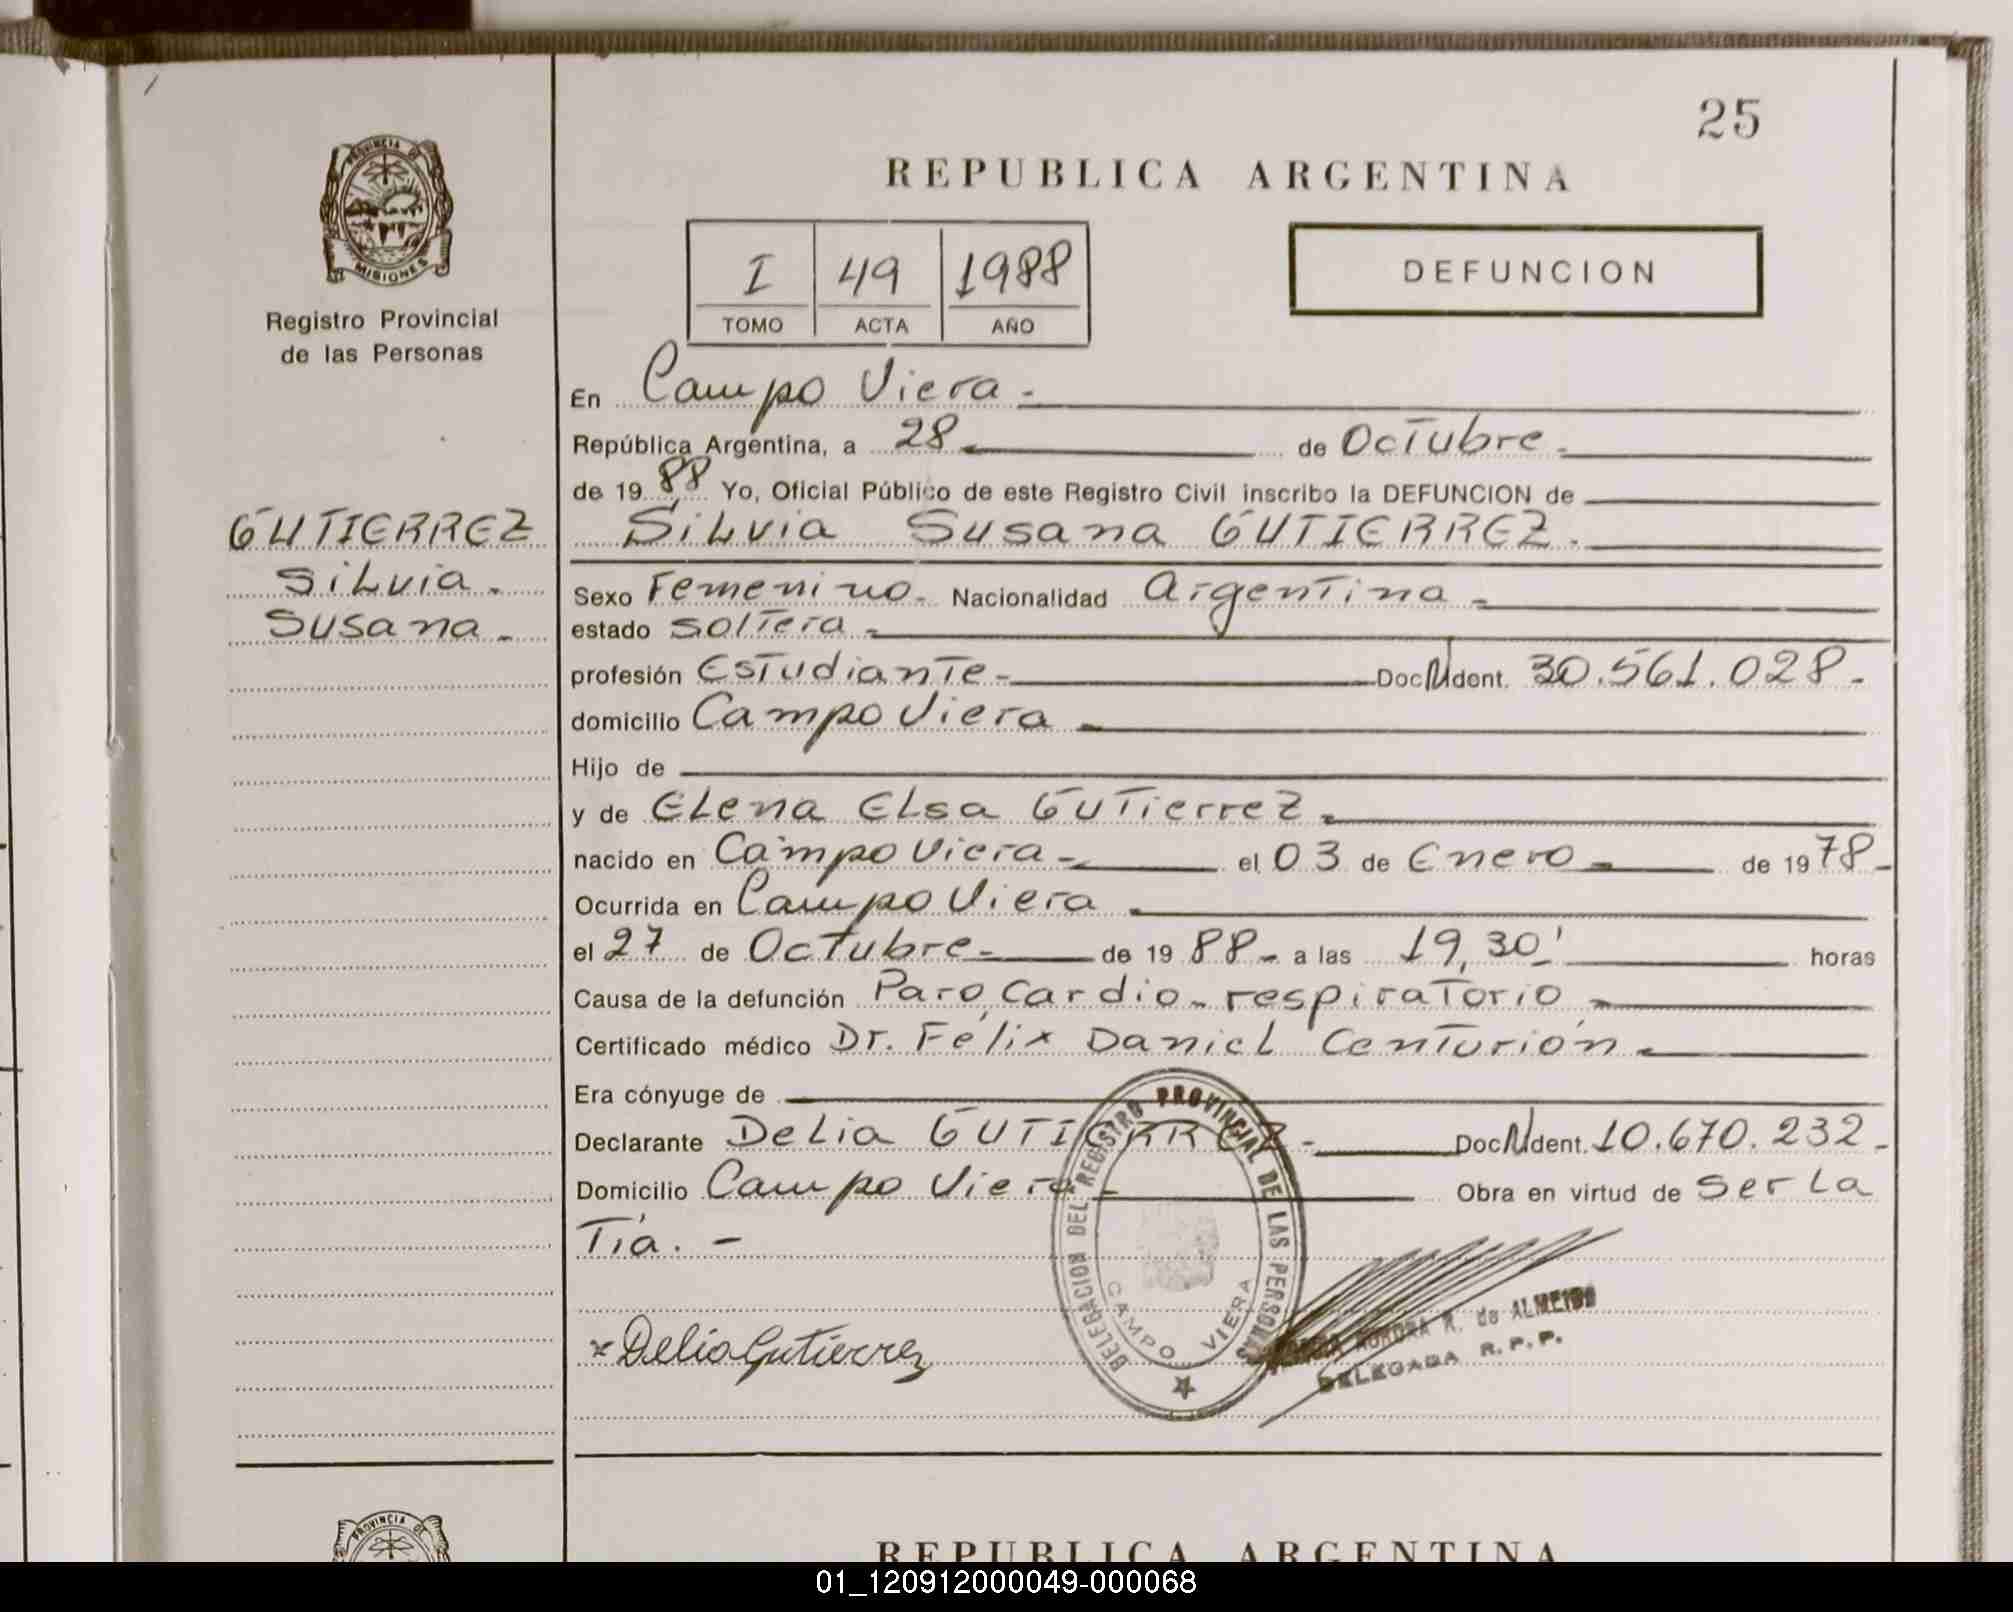 25
PROVINCIA DE
MISIONES
Registro Provincial
de las Personas
REPUBLICA ARGENTINA
I 49 1988
TOMO ACTA AÑO
DEFUNCION
GUTIERREZ
Silvia.
Susana.
En Campo Viera
República Argentina, a 28 de Octubre
de 1988 Yo, Oficial Público de este Registro Civil inscribo la DEFUNCION de
Silvia Susana GUTIERREZ.
Sexo Femenino. Nacionalidad Argentina
estado soltera
profesión Estudiante Doc N Ident. 30.561.028
domicilio Campo Viera
Hijo de
y de Elena Elsa Gutierrez
nacido en Campo Viera el 03 de Enero de 1978
Ocurrida en Campo Viera
el 27 de Octubre de 1988 a las 19,30' horas
Causa de la defunción Paro, cardio-respiratorio
Certificado médico Dr. Félix Daniel Centurión
Era cónyuge de
Declarante Delia GUTIERREZ Doc N Ident. 10.670.232
Domicilio Campo Viera Obra en virtud de ser la
Tía. -
DELEGACION DEL REGISTRO PROVINCIAL DE LAS PERSONAS
CAMPO VIERA
x Delia Gutierrez
AURORA R. de ALMEIDA
DELEGADA R.P.P.
PROVINCIA DE
REPUBLICA ARGENTINA
01_120912000049-000068